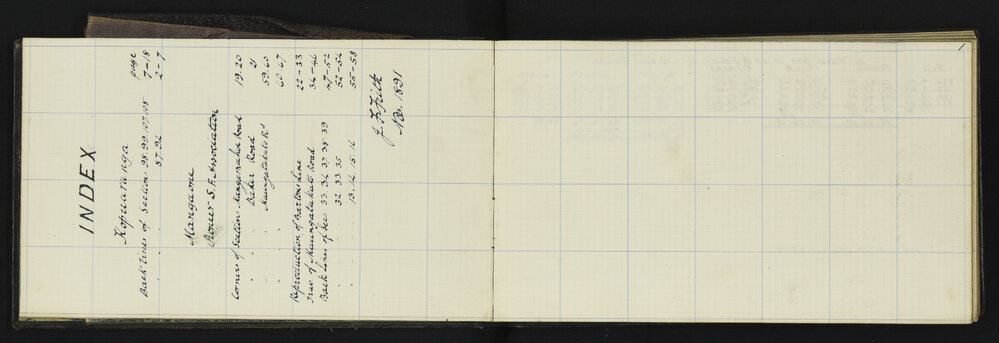 INDEX
Kopuaranga
page
Back lines of Section 98. 99. 107. 108 7-18
. . . 87. 94 2-7
Mangaone
S. F. Association
Corner of Section Mangaraka Road 19. 20
. . . Baker Road 21
. . . Maungatahuhi Rd 59. 60
60. 67
Reproduction of Bartons Line 22-33
Trav of Maungatahuhi Road 34-46
Back Lines of Sec 33. 34. 37. 38. 39 47-52
. . . 32. 33. 35 52-54
. . . 13. 14. 15. 16 55-58
J. F. Frith
1891
1